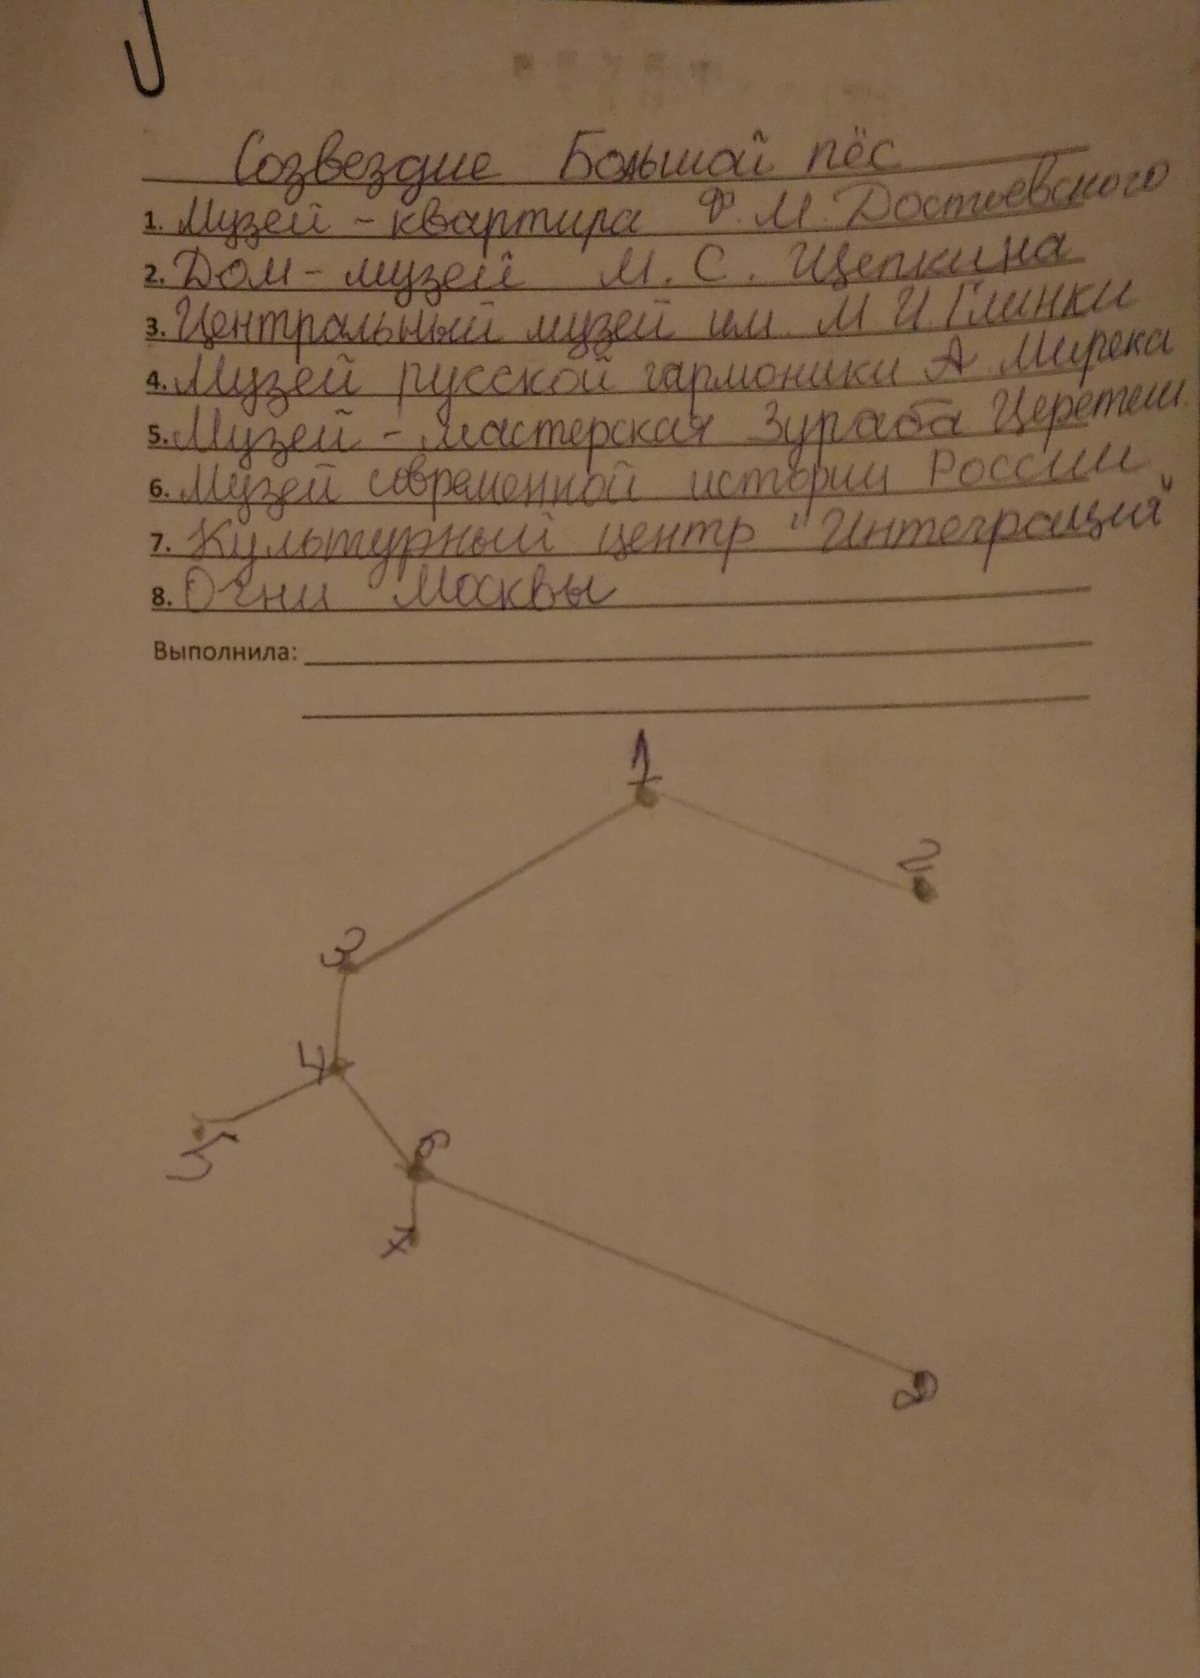 Созвездие Большой пёс
1. Музей - квартира Ф. М. Достоевского
2. Дом - музей М. С. Щепкина
3. Центральный музей им. М И. Глинки
4. Музей русской гармоники А. Мирека
5. Музей - мастерская Зураба Церетели.
6. Музей современной истории России
7. Культурный центр "Интеграция"
8. Огни Москвы
Выполнила:
1
2
3
4
5
6
7
8